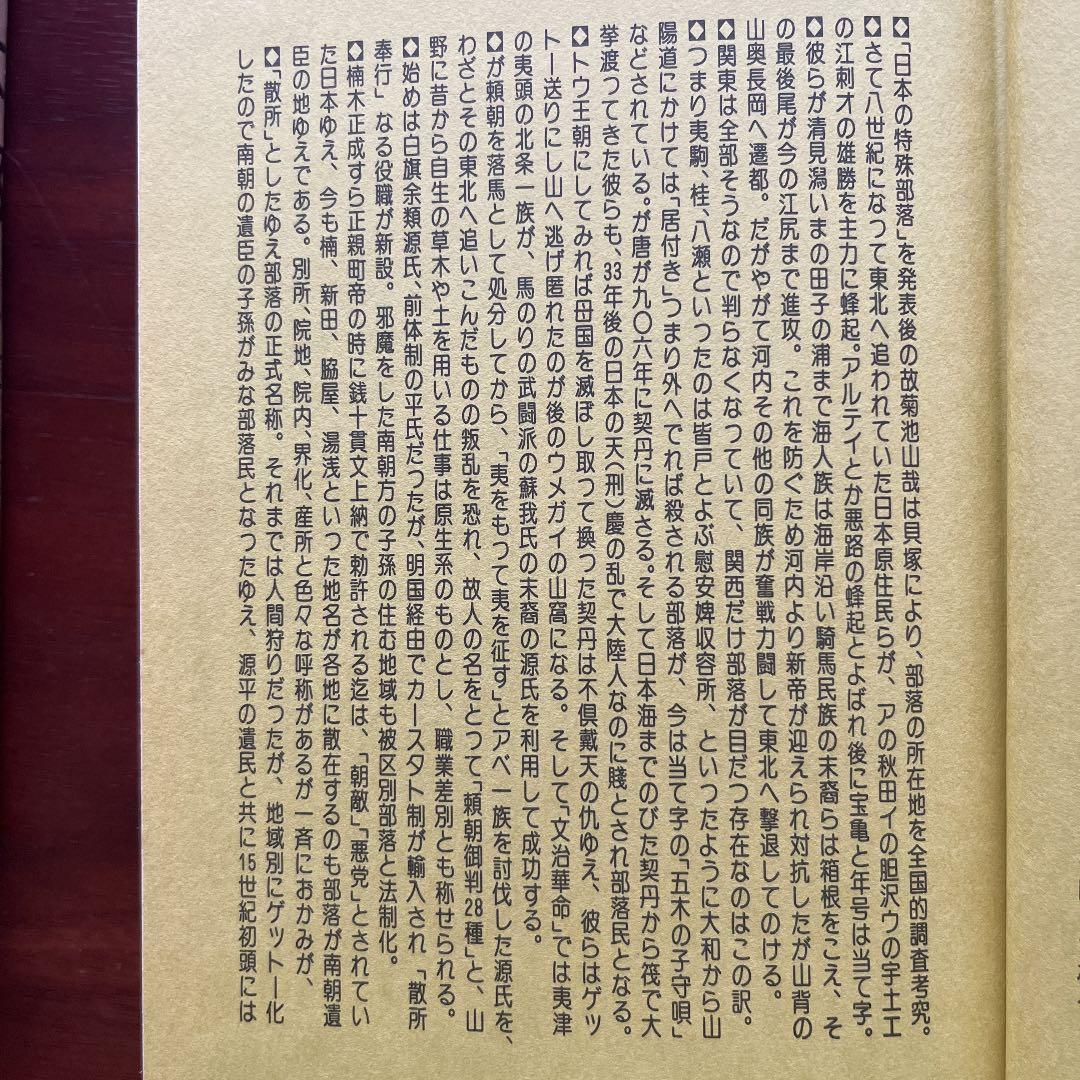 ◆「日本の特殊部落」を発表後の故菊池山哉は貝塚により、部落の所在地を全国的調査考究。
◆さて八世紀になつて東北へ追われていた日本原住民らが、アの秋田イの胆沢ウの宇土エ
の江刺オの雄勝を主力に蜂起。アルテイとか悪路の蜂起とよばれ後に宝亀と年号は当て字。
◆彼らが清見潟いまの田子の浦まで海人族は海岸沿い騎馬民族の末裔らは箱根をこえ、そ
の最後尾が今の江尻まで進攻。これを防ぐため河内より新帝が迎えられ対抗したが山背の
山奥長岡へ遷都。だがやがて河内その他の同族が奮戦力闘して東北へ撃退してのける。
◆関東は全部そうなので判らなくなつていて、関西だけ部落が目だつ存在なのはこの訳。
◆つまり夷駒、桂、八瀬といつたのは皆戸とよぶ慰安婢収容所、といつたように大和から山
陽道にかけては「居付き」つまり外へでれば殺される部落が、今は当て字の「五木の子守唄」
などされている。が唐が九〇六年に契丹に滅さる。そして日本海までのびた契丹から筏で大
挙渡つてきた彼らも、33年後の日本の天(刑)慶の乱で大陸人なのに賤とされ部落民となる。
◆トウ王朝にしてみれば母国を滅ぼし取つて換つた契丹は不倶戴天の仇ゆえ、彼らはゲツ
トー送りにし山へ逃げ匿れたのが後のウメガイの山窩になる。そして「文治華命」では夷津
の夷頭の北条一族が、馬のりの武闘派の蘇我氏の末裔の源氏を利用して成功する。
◆が頼朝を落馬として処分してから、「夷をもつて夷を征す」とアベ一族を討伐した源氏を、
わざとその東北へ追いこんだものの叛乱を恐れ、故人の名をとつて「頼朝御判28種」と、山
野に昔から自生の草木や土を用いる仕事は原生系のものとし、職業差別とも称せられる。
◆始めは白旗余類源氏、前体制の平氏だつたが、明国経由でカースタト制が輸入され「散所
奉行」なる役職が新設。邪魔をした南朝方の子孫の住む地域も被区別部落と法制化。
◆楠木正成すら正親町帝の時に銭十貫文上納で勅許される迄は、「朝敵」「悪党」とされてい
た日本ゆえ、今も楠、新田、脇屋、湯浅といつた地名が各地に散在するのも部落が南朝遺
臣の地ゆえである。別所、院地、院内、界化、産所と色々な呼称があるが一斉におかみが、
◆「散所」としたゆえ部落の正式名称。それまでは人間狩りだつたが、地域別にゲツトー化
したので南朝の遺臣の子孫がみな部落民となつたゆえ、源平の遺民と共に15世紀初頭には